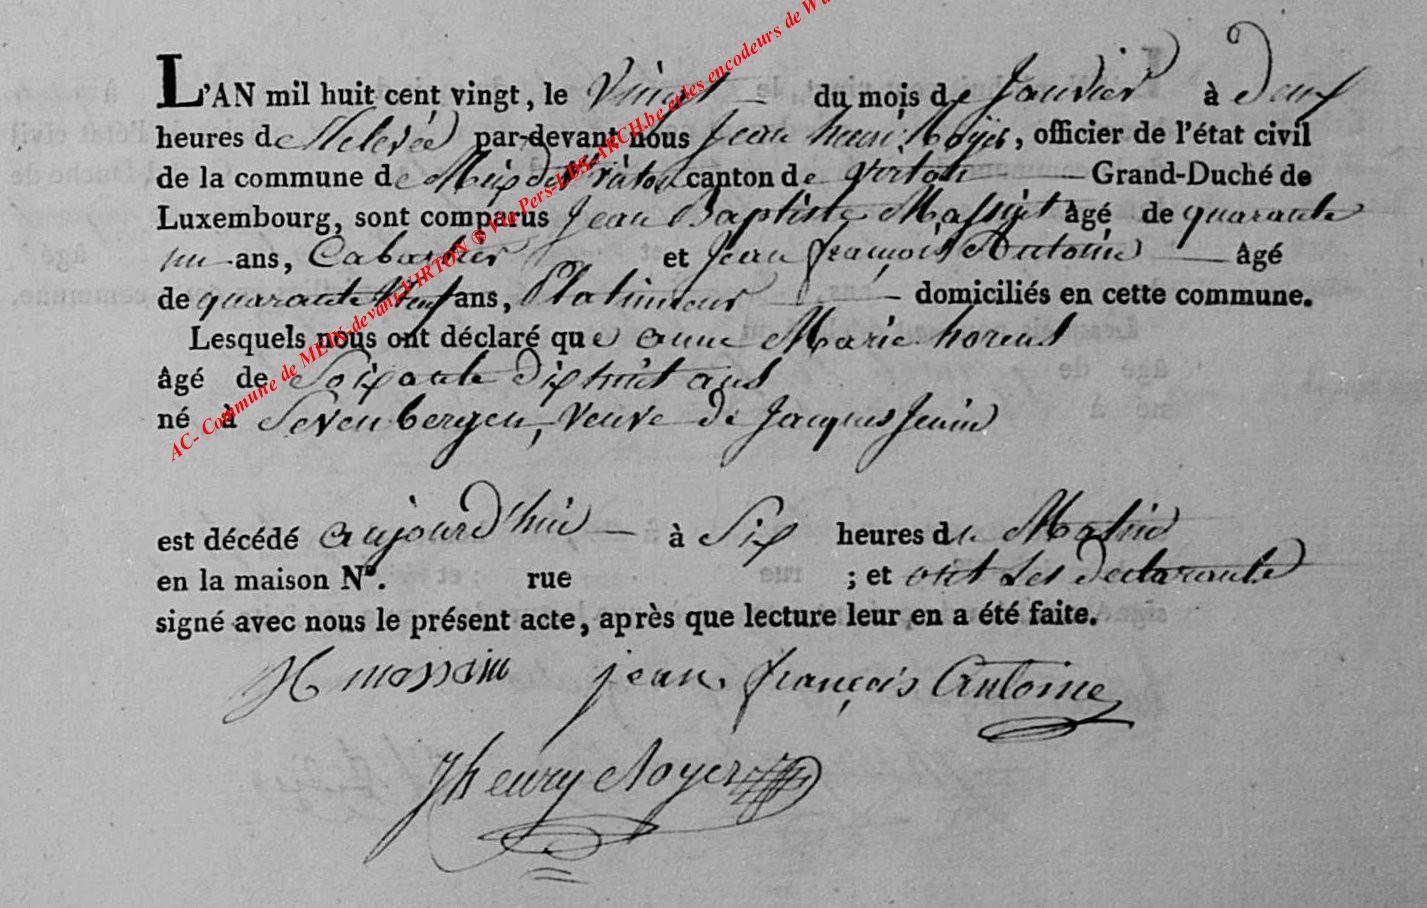 L'AN mil huit cent vingt, le Vingt du mois de Janvier à Deux
heures de Relevée par-devant nous Jean henri Noÿer, officier de l'état civil
de la commune de Meix devt Virton canton de Virton Grand-Duché de
Luxembourg, sont comparus Jean Baptiste âgé de quarante
un ans, Cabartier et Jean françois Antoine âgé
de quarante neuf ans, domiciliés en cette commune.
Lesquels nous ont déclaré que anne Marie
âgé de Soixante Dix huit ans
né à Sevenbergen, Veuve de Jacques Jenin
est décédé aujourd'hui à Six heures du Matin
en la maison No. rue ; et ont Les Declarants
signé avec nous le présent acte, après que lecture leur en a été faite.
jean françois Antoine
Jhenry Noyer
AC- Commune de MEIX-devant-VIRTON ® via Pers-LUX-ARCH.be et les encodeurs de